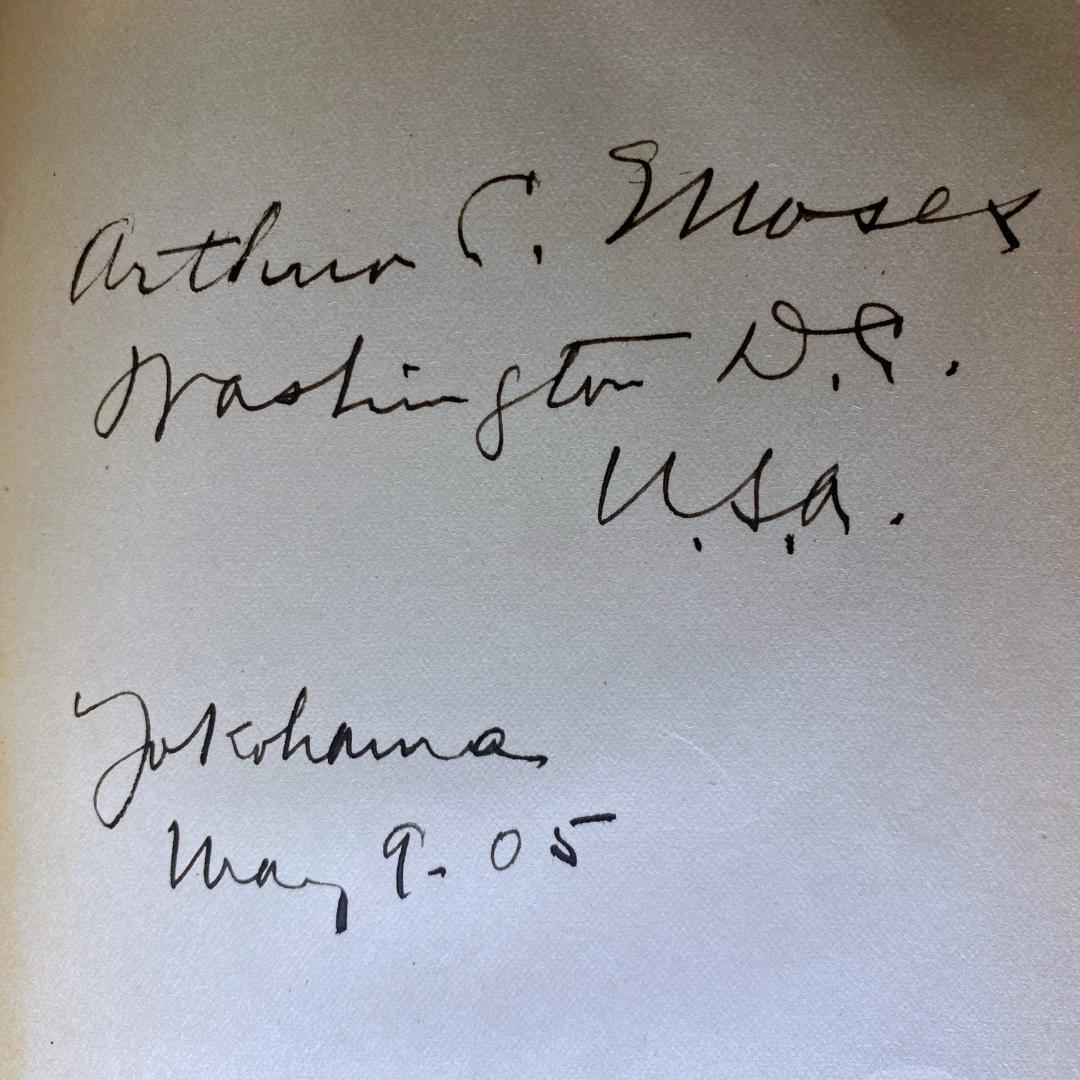 Arthur C. Moses
Washington D.C.
U.S.A.
Yokohama
May 9. 05